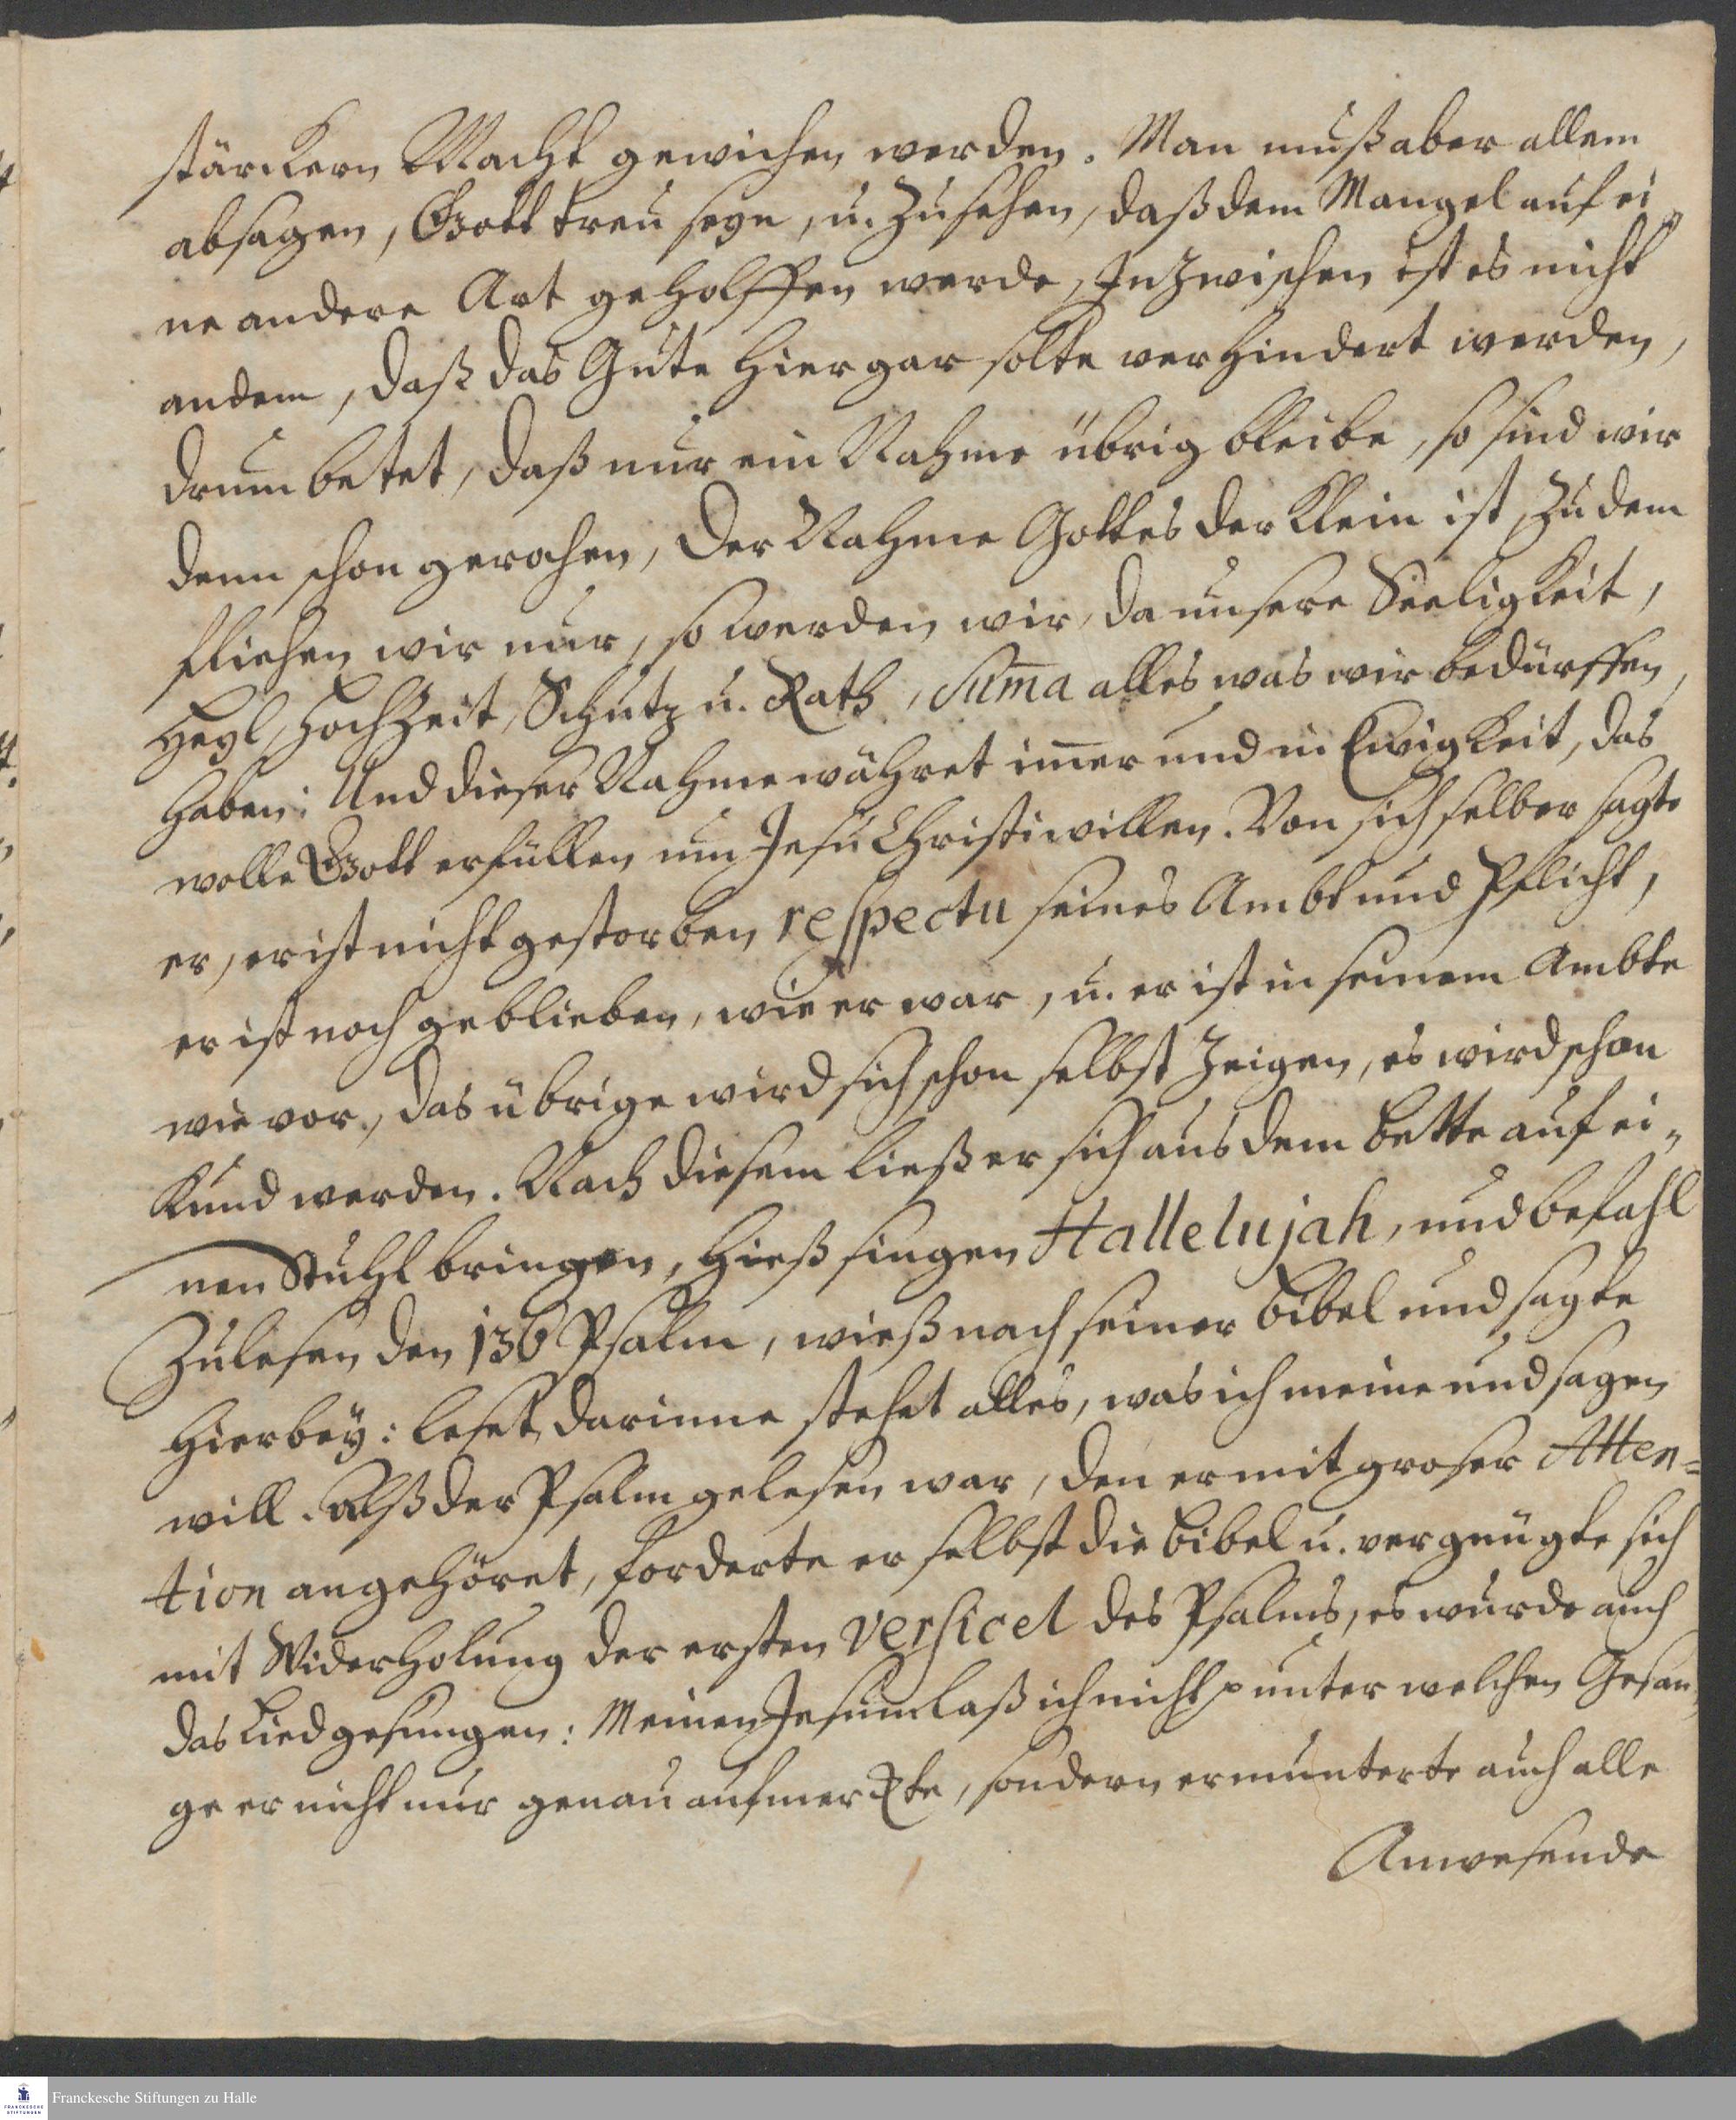 stärckern Macht gewichen werden. Man muß aber allem
absagen, Gott treu seyn, u. zusehen, daß dem Mangel auf ei„
ne andere Art geholffen werde, Inzwischen ist es nicht
andem, daß das Gute hier gar solte verhindert werden,
drum betet, daß nur ein Nahme übrig bleibe, so sind wir
denn schon gerochen, der Nahme Gottes der klein ist, zu dem
fliehen wir nur, so werden wir, da unsere Seeligkeit,
Heyl, Hochzeit, Schutz u. Rath, Sum̄a alles was wir bedürffen,
haben: Und dieser Nahme währet im̄er und in Ewigkeit, das
wolle Gott erfüllen um Jesu Christi willen. Von sich selber sagte
er, er ist nicht gestorben respectu seines Ambt und Pflicht,
er ist noch geblieben, wie er war, u. er ist in seinem Ambte
wie vor, das übrige wird sich schon selbst zeigen, es wird schon
kund werden. Nach diesem ließ er sich aus dem bette auf ei„
nen Stuhl bringen, hieß singen Hallelujah, und befahl
zulesen den 136 Psalm, wieß nach seiner bibel und sagte
hierbey: leset, darinne stehet alles, was ich meine und sagen
will. Alß der Psalm gelesen war, den er mit groser Atten=
tion angehöret, forderte er selbst die bibel u. vergnügte sich
mit Widerholung der ersten Versicel des Psalms, es wurde auch
das Lied gesungen: Meinen Jesum laß ich nicht p unter welchen Gesan„
ge er nicht nur genau aufmerckte, sondern ermunterte auch alle
Anwesende
Franckesche Stiftungen zu Halle
FRANCKESCHE
STIFTUNGEN